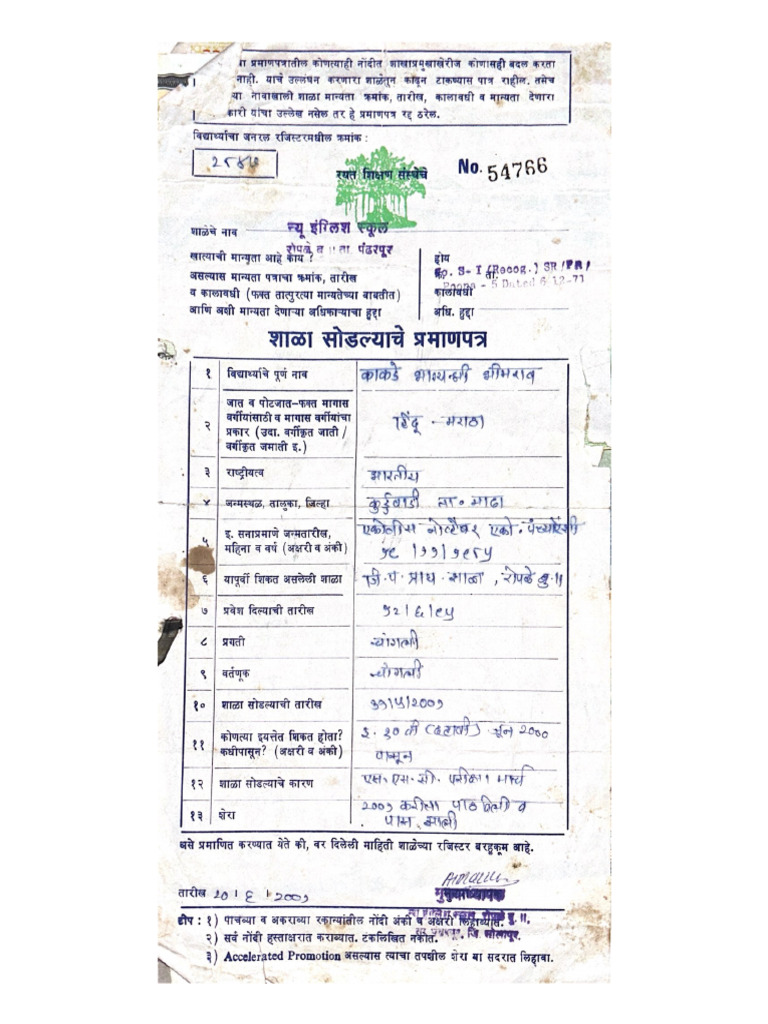 या प्रमाणपत्रातील कोणत्याही नोंदीत शाखाप्रमुखाखेरीज कोणासही बदल करता
नाही. याचे उल्लंघन करणारा शाळेतून काढून टाकण्यास पात्र राहील. तसेच
या नावाखाली शाळा मान्यता क्रमांक, तारीख, कालावधी व मान्यता देणारा
कारी यांचा उल्लेख नसेल तर हे प्रमाणपत्र रद्द ठरेल.
विद्यार्थ्याचा जनरल रजिस्टरमधील क्रमांक :
रयत शिक्षण संस्थेचे
No. 54766
शाळेचे नाव न्यू इंग्लिश स्कूल
रोपळे बु ॥ ता. पंढरपूर
खात्याची मान्यता आहे काय ? होय
असल्यास मान्यता पत्राचा क्रमांक, तारीख S-I (Recog.) SR/PR/
Poona - 5 Dated 6/12-71
व कालावधी (फक्त तात्पुरत्या मान्यतेच्या बाबतीत) कालावधी
आणि अशी मान्यता देणाऱ्या अधिकाऱ्याचा हुद्दा अधि. हुद्दा
शाळा सोडल्याचे प्रमाणपत्र
१ विद्यार्थ्याचे पूर्ण नाव काकडे भाग्यश्री भीमराव
जात व पोटजात-फक्त मागास
वर्गीयांसाठी व मागास वर्गीयांचा
२ प्रकार (उदा. वर्गीकृत जाती / हिंदू - मराठा
वर्गीकृत जमाती इ.)
३ राष्ट्रीयत्व भारतीय
४ जन्मस्थळ, तालुका, जिल्हा कुर्डुवाडी ता. माढा
५ इ. सनाप्रमाणे जन्मतारीख, एकोणीस नोव्हेंबर एको. पंच्याऐंशी
महिना व वर्ष (अक्षरी व अंकी) १९/११/१९८५
६ यापूर्वी शिकत असलेली शाळा जि. प. प्राथ. शाळा, रोपळे बु.॥
७ प्रवेश दिल्याची तारीख १२/६/९५
८ प्रगती चांगली
९ वर्तणूक चांगली
१० शाळा सोडल्याची तारीख ३१/५/२००१
कोणत्या इयत्तेत शिकत होता? इ. १० वी (दहावी) जून २०००
११ कधीपासून? (अक्षरी व अंकी) पासून
१२ शाळा सोडल्याचे कारण एस. एस. सी. परीक्षा मार्च
१३ शेरा २००१ करीता पाठविली व
पास झाली
असे प्रमाणित करण्यात येते की, वर दिलेली माहिती शाळेच्या रजिस्टर बरहुकूम आहे.
तारीख २० / ६ / २००१ मुख्याध्यापक
टीप : १) पाचव्या व अकराव्या रकान्यांतील नोंदी अंकी व अक्षरी लिहाव्यास.
२) सर्व नोंदी हस्ताक्षरात कराव्यात. टंकलिखित नकोत. जि. सोलापूर.
३) Accelerated Promotion असल्यास त्याचा तपशील शेरा या सदरात लिहावा.